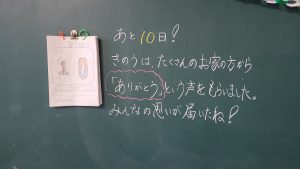 10
あと10日!
きのうは、たくさんのお家の方から
「ありがとう」という声をもらいました。
みんなの思いが届いたね!